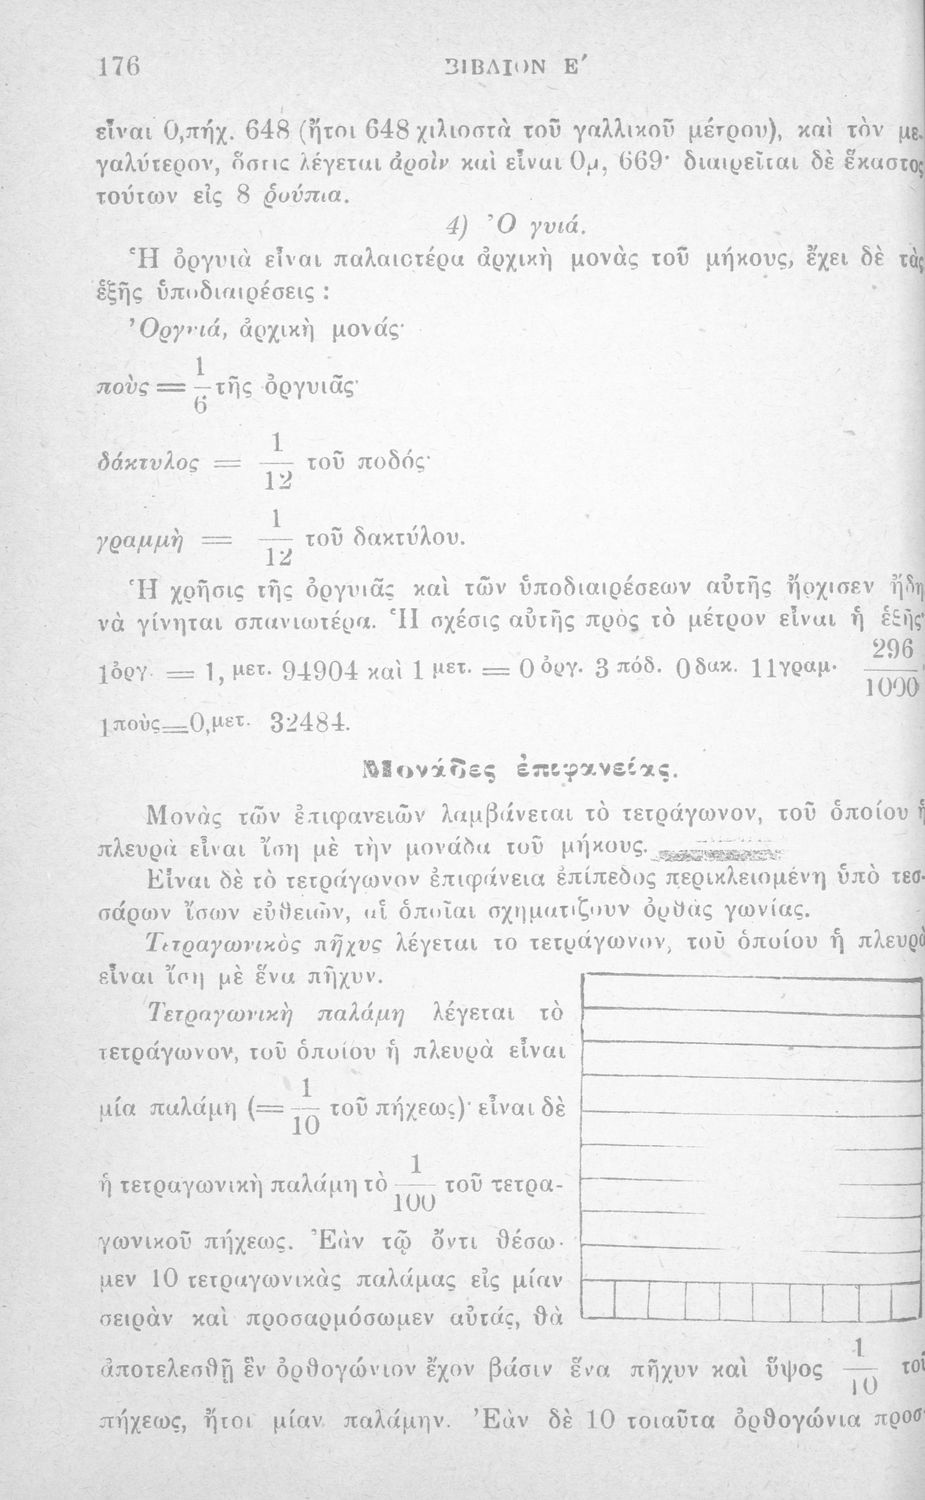 176 ΒΙΒΛΙΟΝ Ε΄
εἶναι 0,πήχ. 648 (ἤτοι 648 χιλιοστὰ τοῦ γαλλικοῦ μέτρου), καὶ τὸν με-
γαλύτερον, ὅστις λέγεται ἀρσὶν καὶ εἶναι 0μ, 669· διαιρεῖται δὲ ἕκαστος
τούτων εἰς 8 ῥούπια.
4) Ὀ γυιά.
Ἡ ὀργυιὰ εἶναι παλαιοτέρα ἀρχικὴ μονὰς τοῦ μήκους, ἔχει δὲ τὰς
ἑξῆς ὑποδιαιρέσεις :
Ὀργυιά, ἀρχικὴ μονάς·
ποὺς = 1/6 τῆς ὀργυιᾶς·
δάκτυλος = 1/12 τοῦ ποδός·
γραμμὴ = 1/12 τοῦ δακτύλου.
Ἡ χρῆσις τῆς ὀργυιᾶς καὶ τῶν ὑποδιαιρέσεων αὐτῆς ἤρχισεν ἤδη
νὰ γίνηται σπανιωτέρα. Ἡ σχέσις αὐτῆς πρὸς τὸ μέτρον εἶναι ἡ ἑξῆς·
1ὀργ. = 1, μετ. 94904 καὶ 1 μετ. = 0 ὀργ. 3 πόδ. 0 δακ. 11γραμ. 296/1000·
1ποὺς=0,μετ. 32484.
Μονάδες ἐπιφανείας.
Μονὰς τῶν ἐπιφανειῶν λαμβάνεται τὸ τετράγωνον, τοῦ ὁποίου ἡ
πλευρὰ εἶναι ἴση μὲ τὴν μονάδα τοῦ μήκους.
Εἶναι δὲ τὸ τετράγωνον ἐπιφάνεια ἐπίπεδος περικλειομένη ὑπὸ τεσ-
σάρων ἴσων εὐθειῶν, αἱ ὁποῖαι σχηματίζουν ὀρθὰς γωνίας.
Τετραγωνικὸς πῆχυς λέγεται το τετράγωνον, τοῦ ὁποίου ἡ πλευρὰ
εἶναι ἴση μὲ ἕνα πῆχυν.
Τετραγωνικὴ παλάμη λέγεται τὸ
τετράγωνον, τοῦ ὁποίου ἡ πλευρὰ εἶναι
μία παλάμη (= 1/10 τοῦ πήχεως)· εἶναι δὲ
ἡ τετραγωνικὴ παλάμη τὸ 1/100 τοῦ τετρα-
γωνικοῦ πήχεως. Ἐὰν τῷ ὄντι θέσω-
μεν 10 τετραγωνικὰς παλάμας εἰς μίαν
σειρὰν καὶ προσαρμόσωμεν αὐτάς, θὰ
ἀποτελεσθῇ ἓν ὀρθογώνιον ἔχον βάσιν ἕνα πῆχυν καὶ ὕψος 1/10 τοῦ
πήχεως, ἤτοι μίαν παλάμην. Ἐὰν δὲ 10 τοιαῦτα ὀρθογώνια προσ-